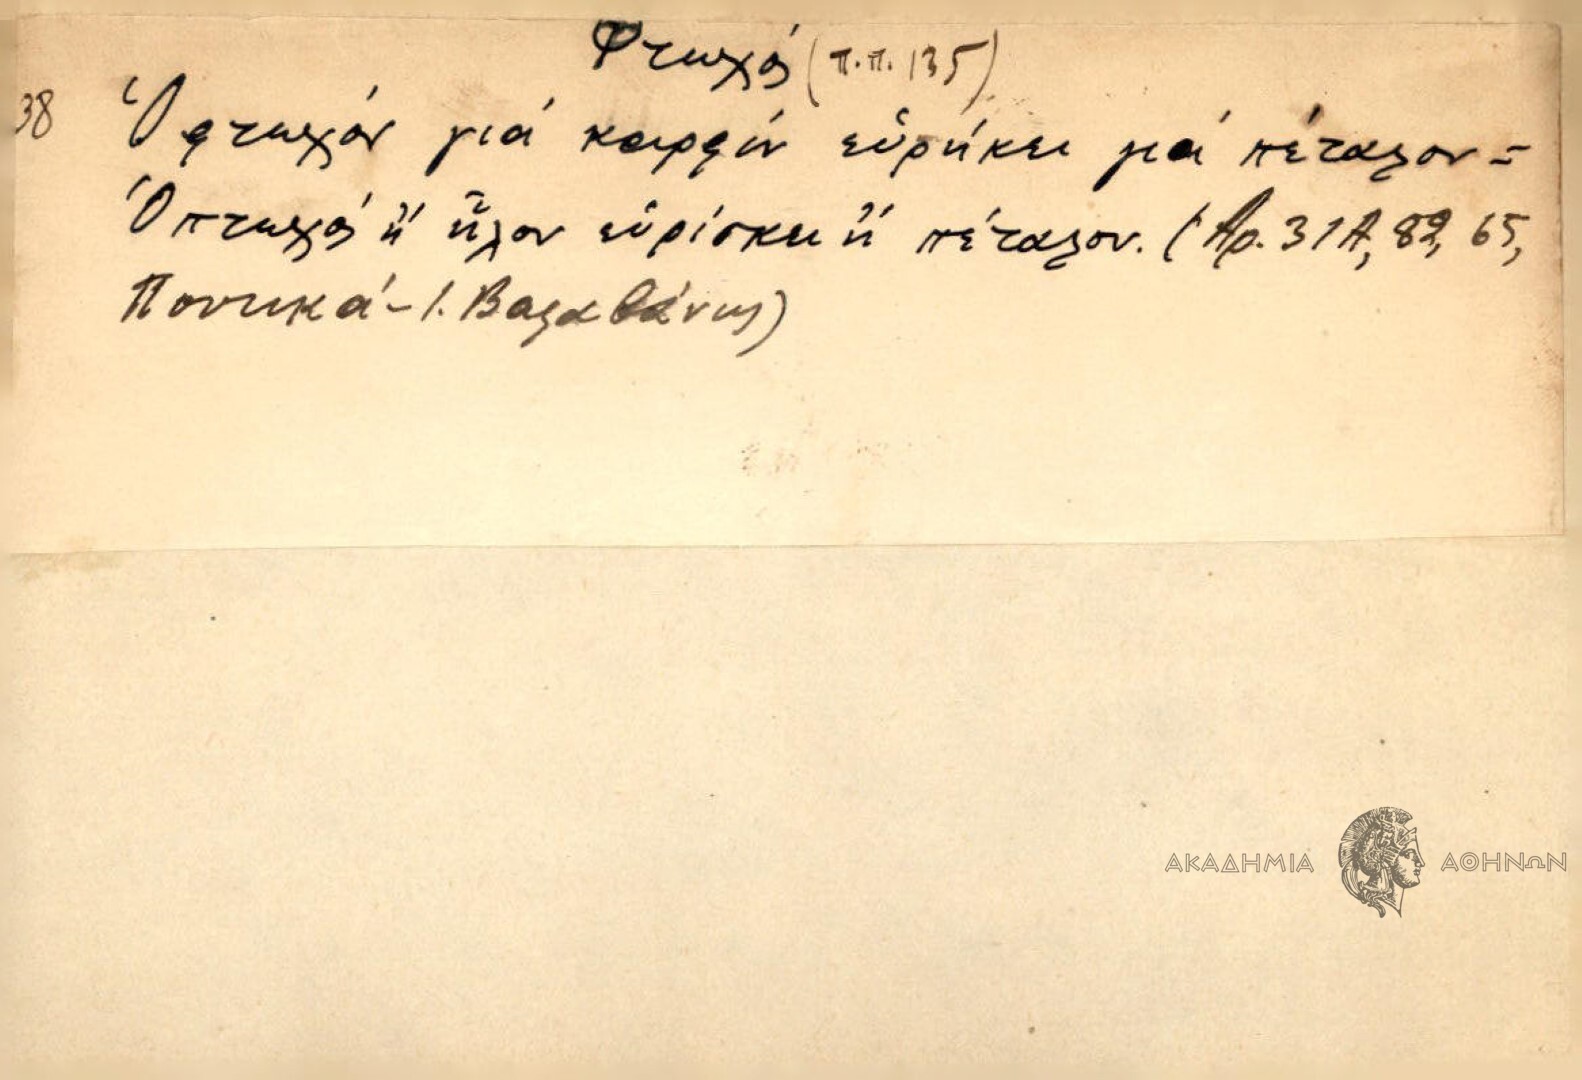 Φτωχός (π.π. 135)
38 Ὁ φτωχόν γιά καρφίν εὑρήκει γιά πέταλον =
Ὁ πτωχός ἤ ἧλον εὑρίσκει ἤ πέταλον. (Ἀρ. 31Α, 82, 65,
Ποντικά - Ι. Βαλαβάνης)
ΑΚΑΔΗΜΙΑ ΑΘΗΝΩΝ